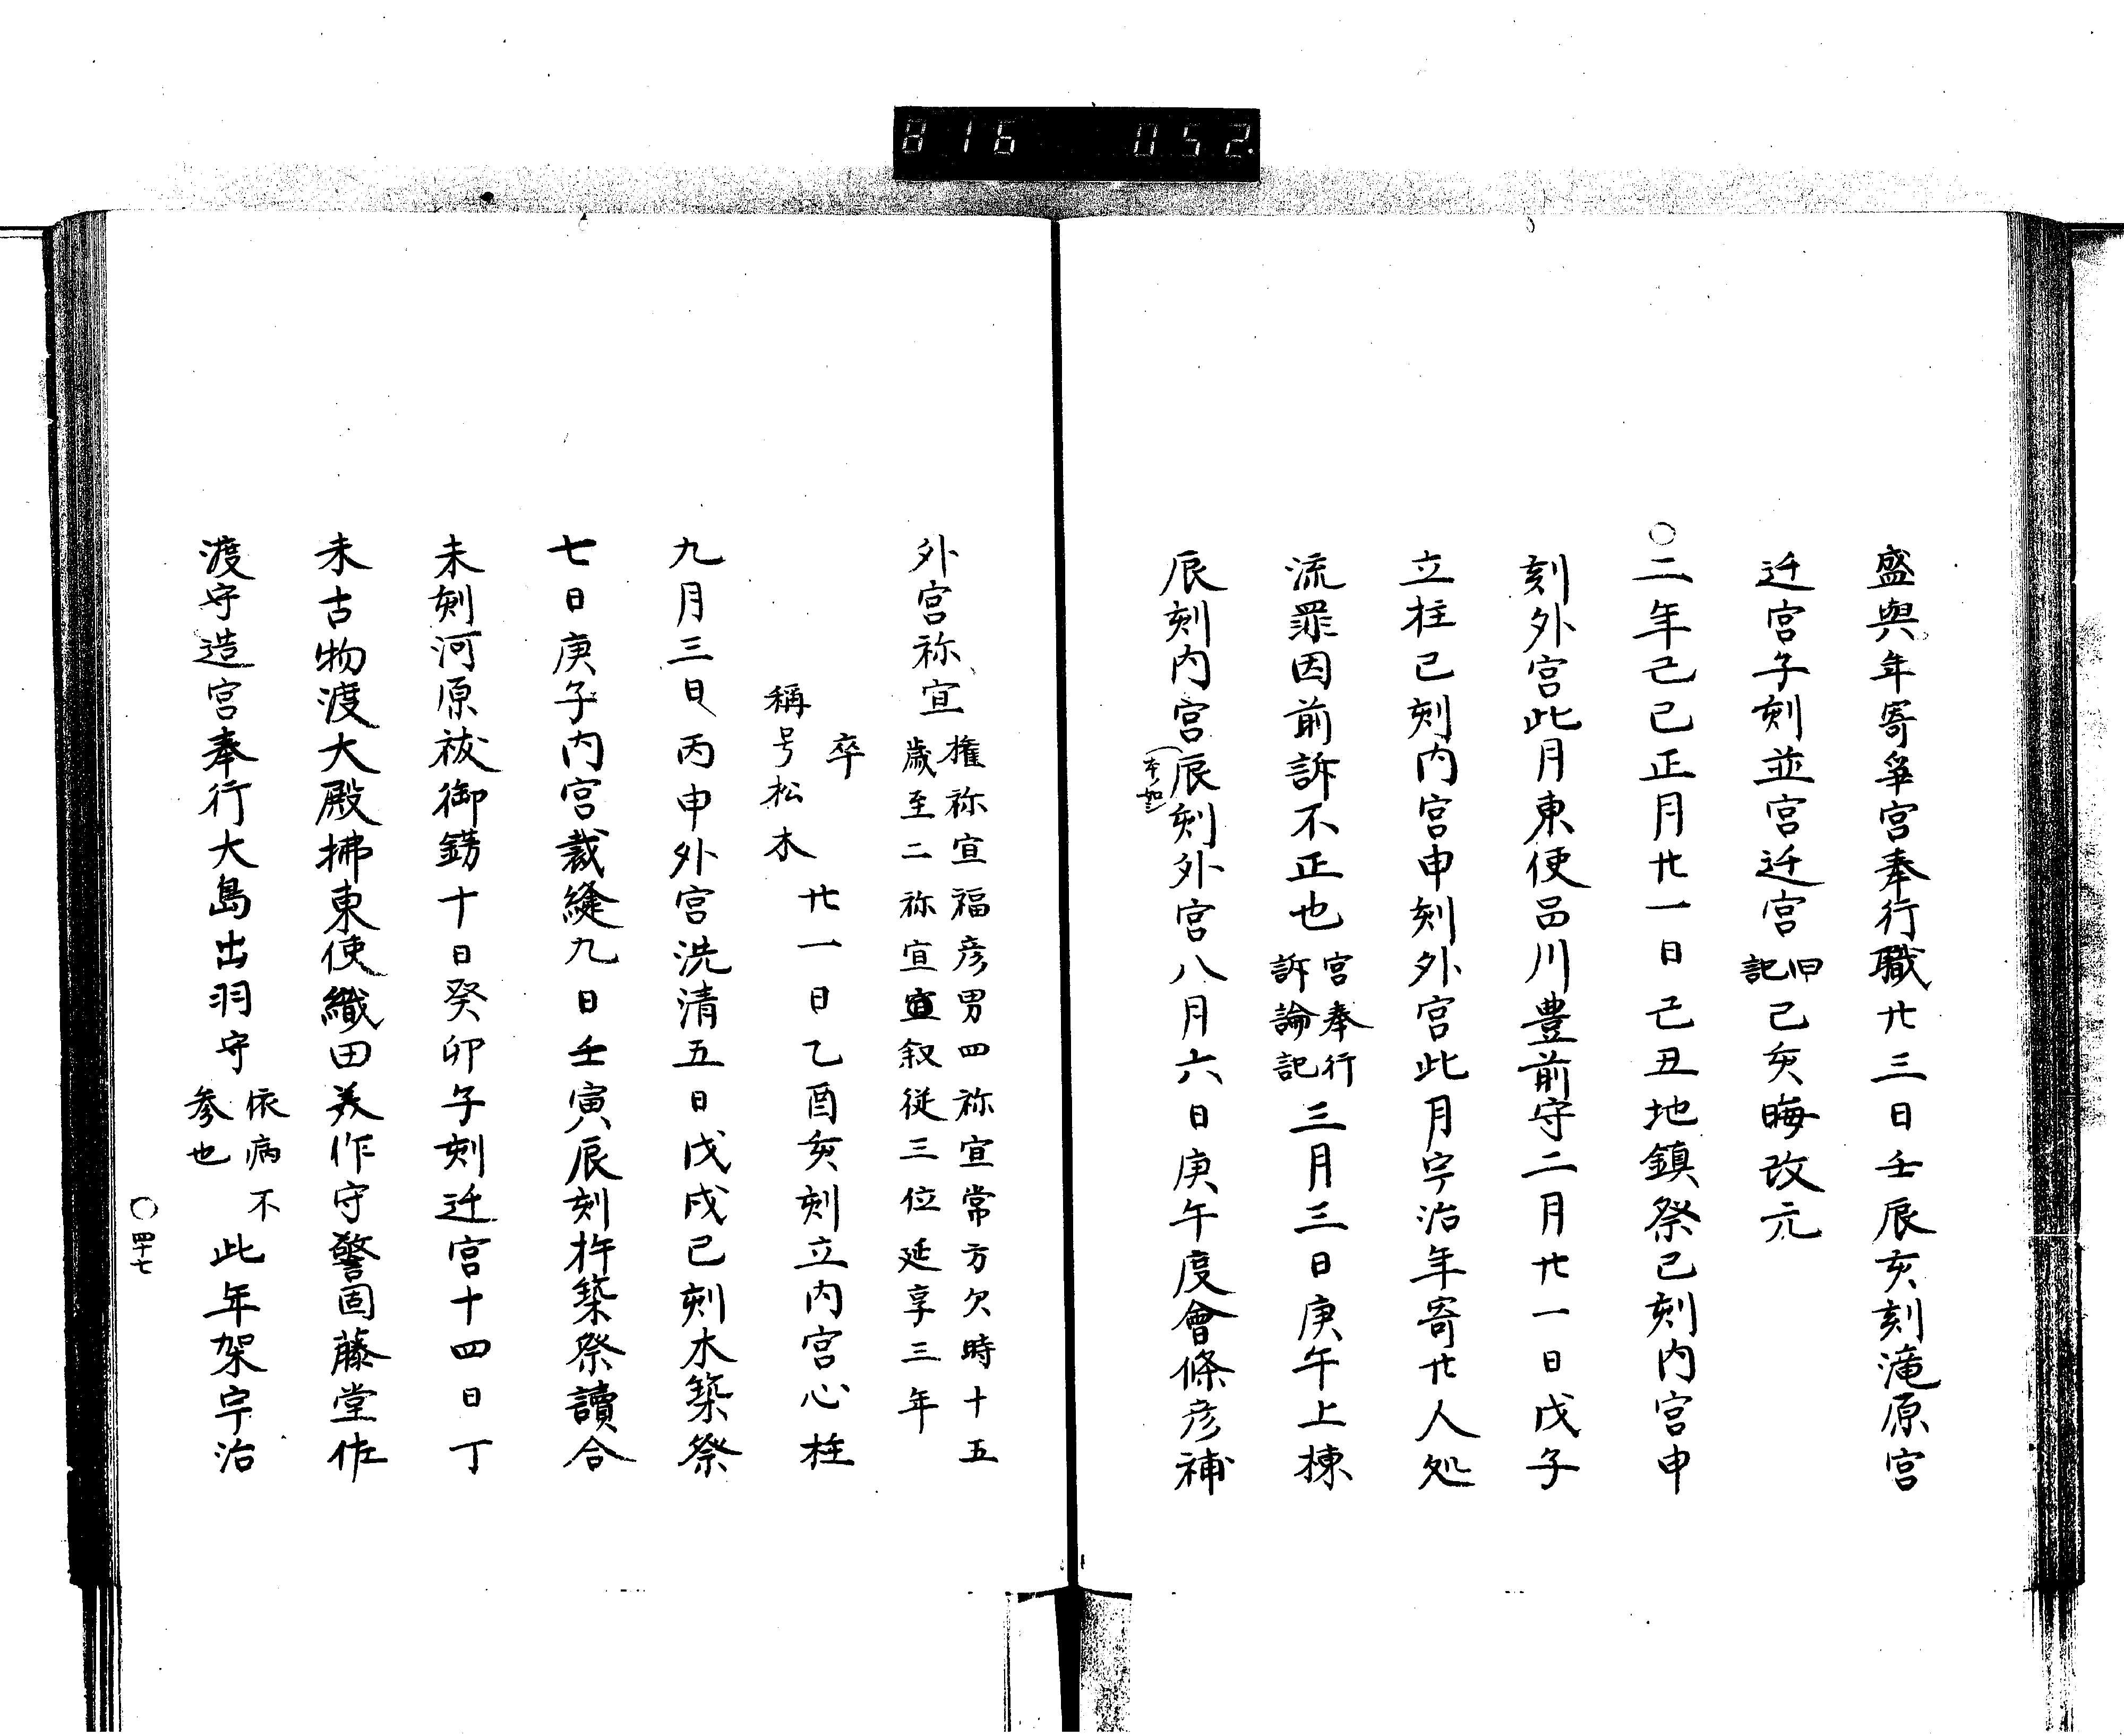 816 052
盛與年寄争宮奉行職廿三日壬辰亥刻滝原宮
迁宮子刻並宮迁宮旧記己亥晦改元
○二年己巳正月廿一日己丑地鎮祭巳刻内宮申
刻外宮此月東使品川豊前守二月廿一日戊子
立柱巳刻内宮申刻外宮此月宇治年寄廿人処
流罪因前訴不正也宮奉行訴論記三月三日庚午上棟
辰刻内宮辰刻外宮八月六日庚午度會條彦補
外宮祢宣権祢宣福彦男四祢宣常方欠時十五
歳至二祢宣宣叙従三位延享三年
卒
稱号松木
廿一日乙酉亥刻立内宮心柱
九月三日丙申外宮洗清五日戊戌巳刻木築祭
七日庚子内宮裁縫九日壬寅辰刻杵築祭讀合
未刻河原祓御錺十日癸卯子刻迁宮十四日丁
未古物渡大殿拂東使織田美作守警固藤堂佐
渡守造宮奉行大島出羽守依病不参也此年架宇治
○四十七